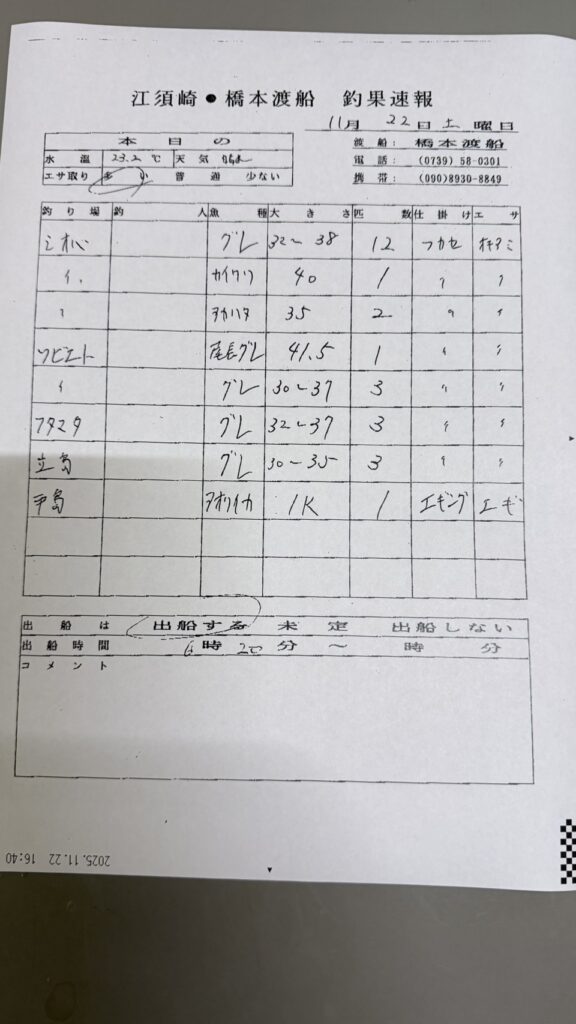 江須崎●橋本渡船 釣果速報
11月 22日 土 曜日
本日の
水温 23.2 ℃ 天気 晴れ
エサ取り 多い 普通 少ない
渡船: 橋本渡船
電話: (0739) 58-0301
携帯: (090)8930-8849
釣り場 釣人 魚種 大きさ 匹数 仕掛け エサ
グレ 32～38 12 フカセ オキアミ
〃 カイワリ 40 1 〃 〃
〃 35 2 〃 〃
ソビエト 尾長グレ 41.5 1 〃 〃
〃 グレ 30～37 3 〃 〃
フタマタ グレ 32～37 3 〃 〃
立島 グレ 30～35 3 〃 〃
平島 アオリイカ 1K 1 エギング エギ
出船は 出船する 未定 出船しない
出船時間 6時 20分 ～ 時 分
コメント
2025.11.22 16:40